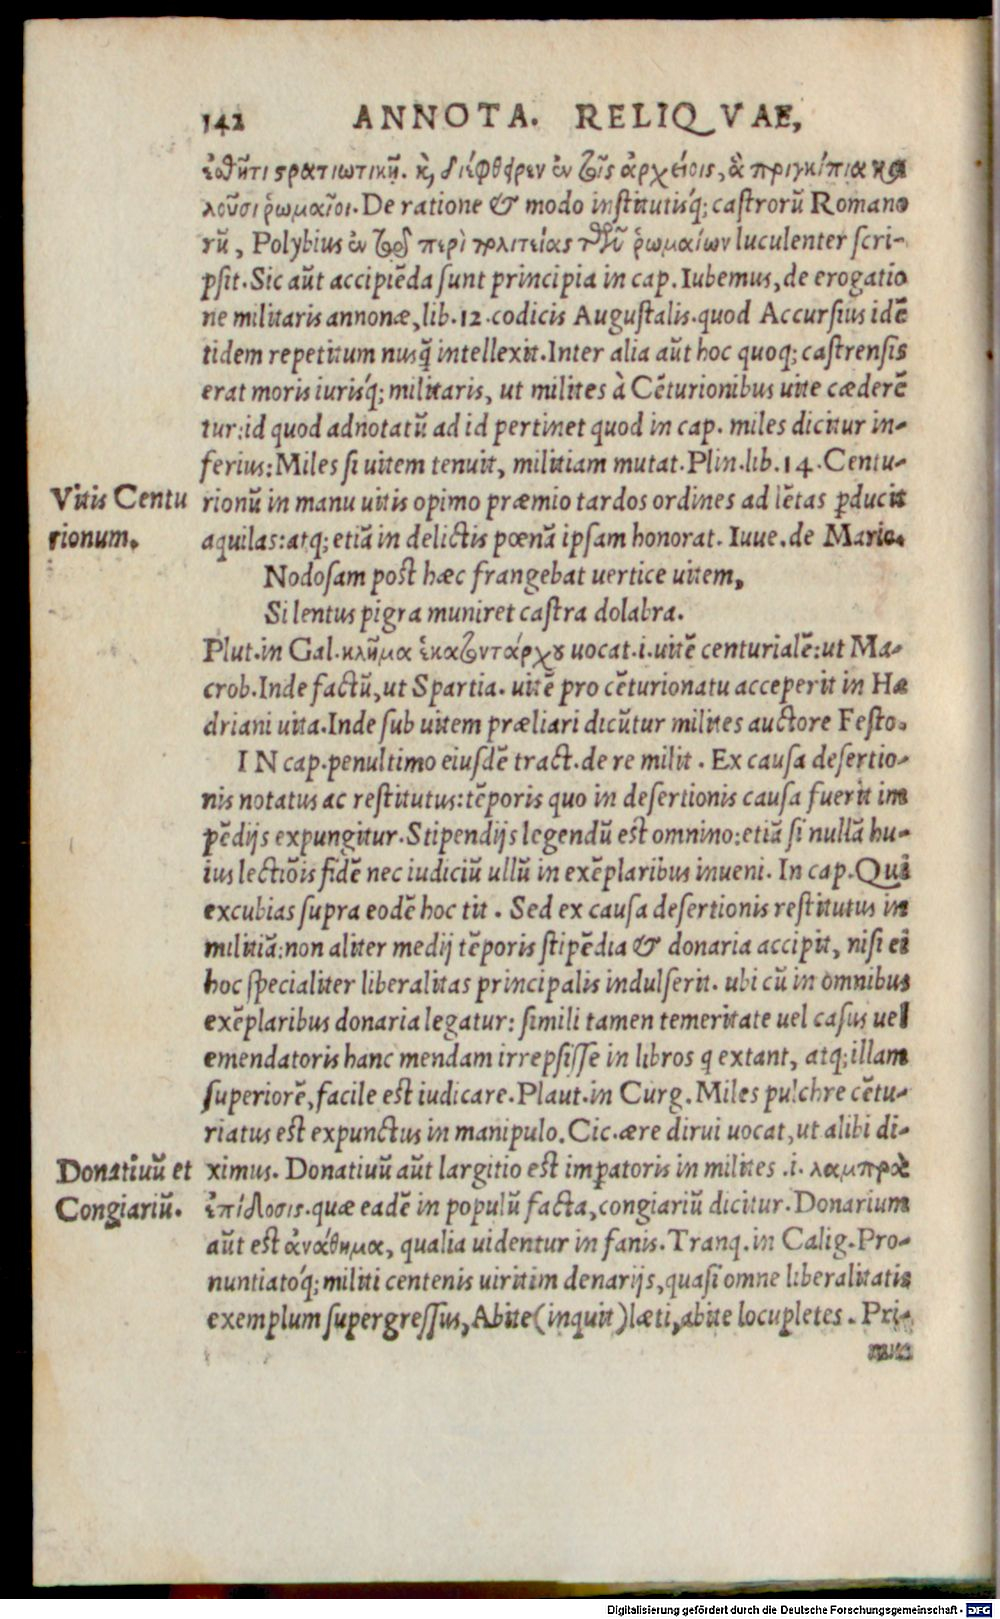 142 ANNOTA. RELIQVAE,
ἐσθῆτι στρατιωτικῇ. κ̀, διέφθειρεν ἐν τοῖς ἀρχείοις, ἃ πριγκίπια κα
λοῦσι ῥωμαῖοι. De ratione & modo institutisq́; castrorũ Romano
rũ, Polybius ἐν τῷ περὶ πολιτείας τῶν ῥωμαίων luculenter scri-
psit. Sic aũt accipiẽda sunt principia in cap. Iubemus, de erogatio
ne militaris annonæ, lib. 12. codicis Augustalis. quod Accursius idẽ
tidem repetitum nusq̃ intellexit. Inter alia aũt hoc quoq; castrensis
erat moris iurisq́; militaris, ut milites à Cẽturionibus uite cæderẽ
tur: id quod adnotatũ ad id pertinet quod in cap. miles dicitur in-
ferius: Miles si uitem tenuit, militiam mutat. Plin. lib. 14. Centu-
Vitis Centu
rionum.
rionũ in manu uitis opimo præmio tardos ordines ad lẽtas ꝑducit
aquilas: atq; etiã in delictis pœnã ipsam honorat. Iuue. de Mario.
Nodosam post hæc frangebat uertice uitem,
Si lentus pigra muniret castra dolabra.
Plut. in Gal. κλῆμα ἑκατοντάρχου uocat. i. uitẽ centurialẽ: ut Ma-
crob. Inde factũ, ut Spartia. uitẽ pro cẽturionatu acceperit in Ha
driani uita. Inde sub uitem præliari dicũtur milites auctore Festo.
IN cap. penultimo eiusdẽ tract. de re milit. Ex causa desertio-
nis notatus ac restitutus: tẽporis quo in desertionis causa fuerit im
pẽdijs expungitur. Stipendijs legendũ est omnino: etiã si nullã hu-
ius lectiõis fidẽ nec iudiciũ ullũ in exẽplaribus inueni. In cap. Qui
excubias supra eodẽ hoc tit. Sed ex causa desertionis restitutus in
militiã: non aliter medij tẽporis stipẽdia & donaria accipit, nisi ei
hoc specialiter liberalitas principalis indulserit. ubi cũ in omnibus
exẽplaribus donaria legatur: simili tamen temeritate uel casus uel
emendatoris hanc mendam irrepsisse in libros q extant, atq; illam
superiorẽ, facile est iudicare. Plaut. in Curg. Miles pulchre cẽtu-
riatus est expunctus in manipulo. Cic. ære dirui uocat, ut alibi di-
Donatiuũ et
Congiariũ.
ximus. Donatiuũ aũt largitio est imꝑatoris in milites .i. λαμπρὰ
ἐπίδοσις. quæ eadẽ in populũ facta, congiariũ dicitur. Donarium
aũt est ἀνάθημα, qualia uidentur in fanis. Tranq. in Calig. Pro-
nuntiatóq; militi centenis uiritim denarijs, quasi omne liberalitatis
exemplum supergressus, Abite (inquit) læti, abite locupletes. Pri-
mus
Digitalisierung gefördert durch die Deutsche Forschungsgemeinschaft - DFG